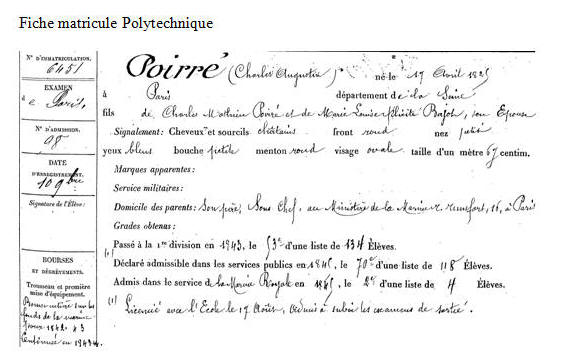 Fiche matricule Polytechnique
N° D'IMMATRICULATION.
6451
EXAMEN
à Paris,
N° D'ADMISSION.
98
DATE
D'ENREGISTREMENT.
10 9bre
Signature de l'Élève:
BOURSES
ET DÉGRÈVEMENTS.
Trousseau et première
mise d'équipement.
fonds de la marine
Continuée en 1843
Poirré (Charles Augustin) né le 17 Avril 1825
à Paris département de la Seine
fils de Charles Mathieu Poirré et de Marie Louise Félicité, son Epouse
Signalement: Cheveux et sourcils châtains front rond nez petit
yeux bleus bouche petite menton rond visage ovale taille d'un mètre 67 centim.
Marques apparentes:
Service militaires:
Domicile des parents: Son père, Sous Chef, au Ministère de la Marine r. 16, à Paris
Grades obtenus:
Passé à la 1re division en 1843, le 53e d'une liste de 134 Élèves.
(1) Déclaré admissible dans les services publics en 1845, le 70e d'une liste de 118 Élèves.
Admis dans le service de la Marine Royale en 1845, le 2e d'une liste de 4 Élèves.
(1) Licencié avec l'Ecole le 17 Août, admis à subir les examens de sortie.